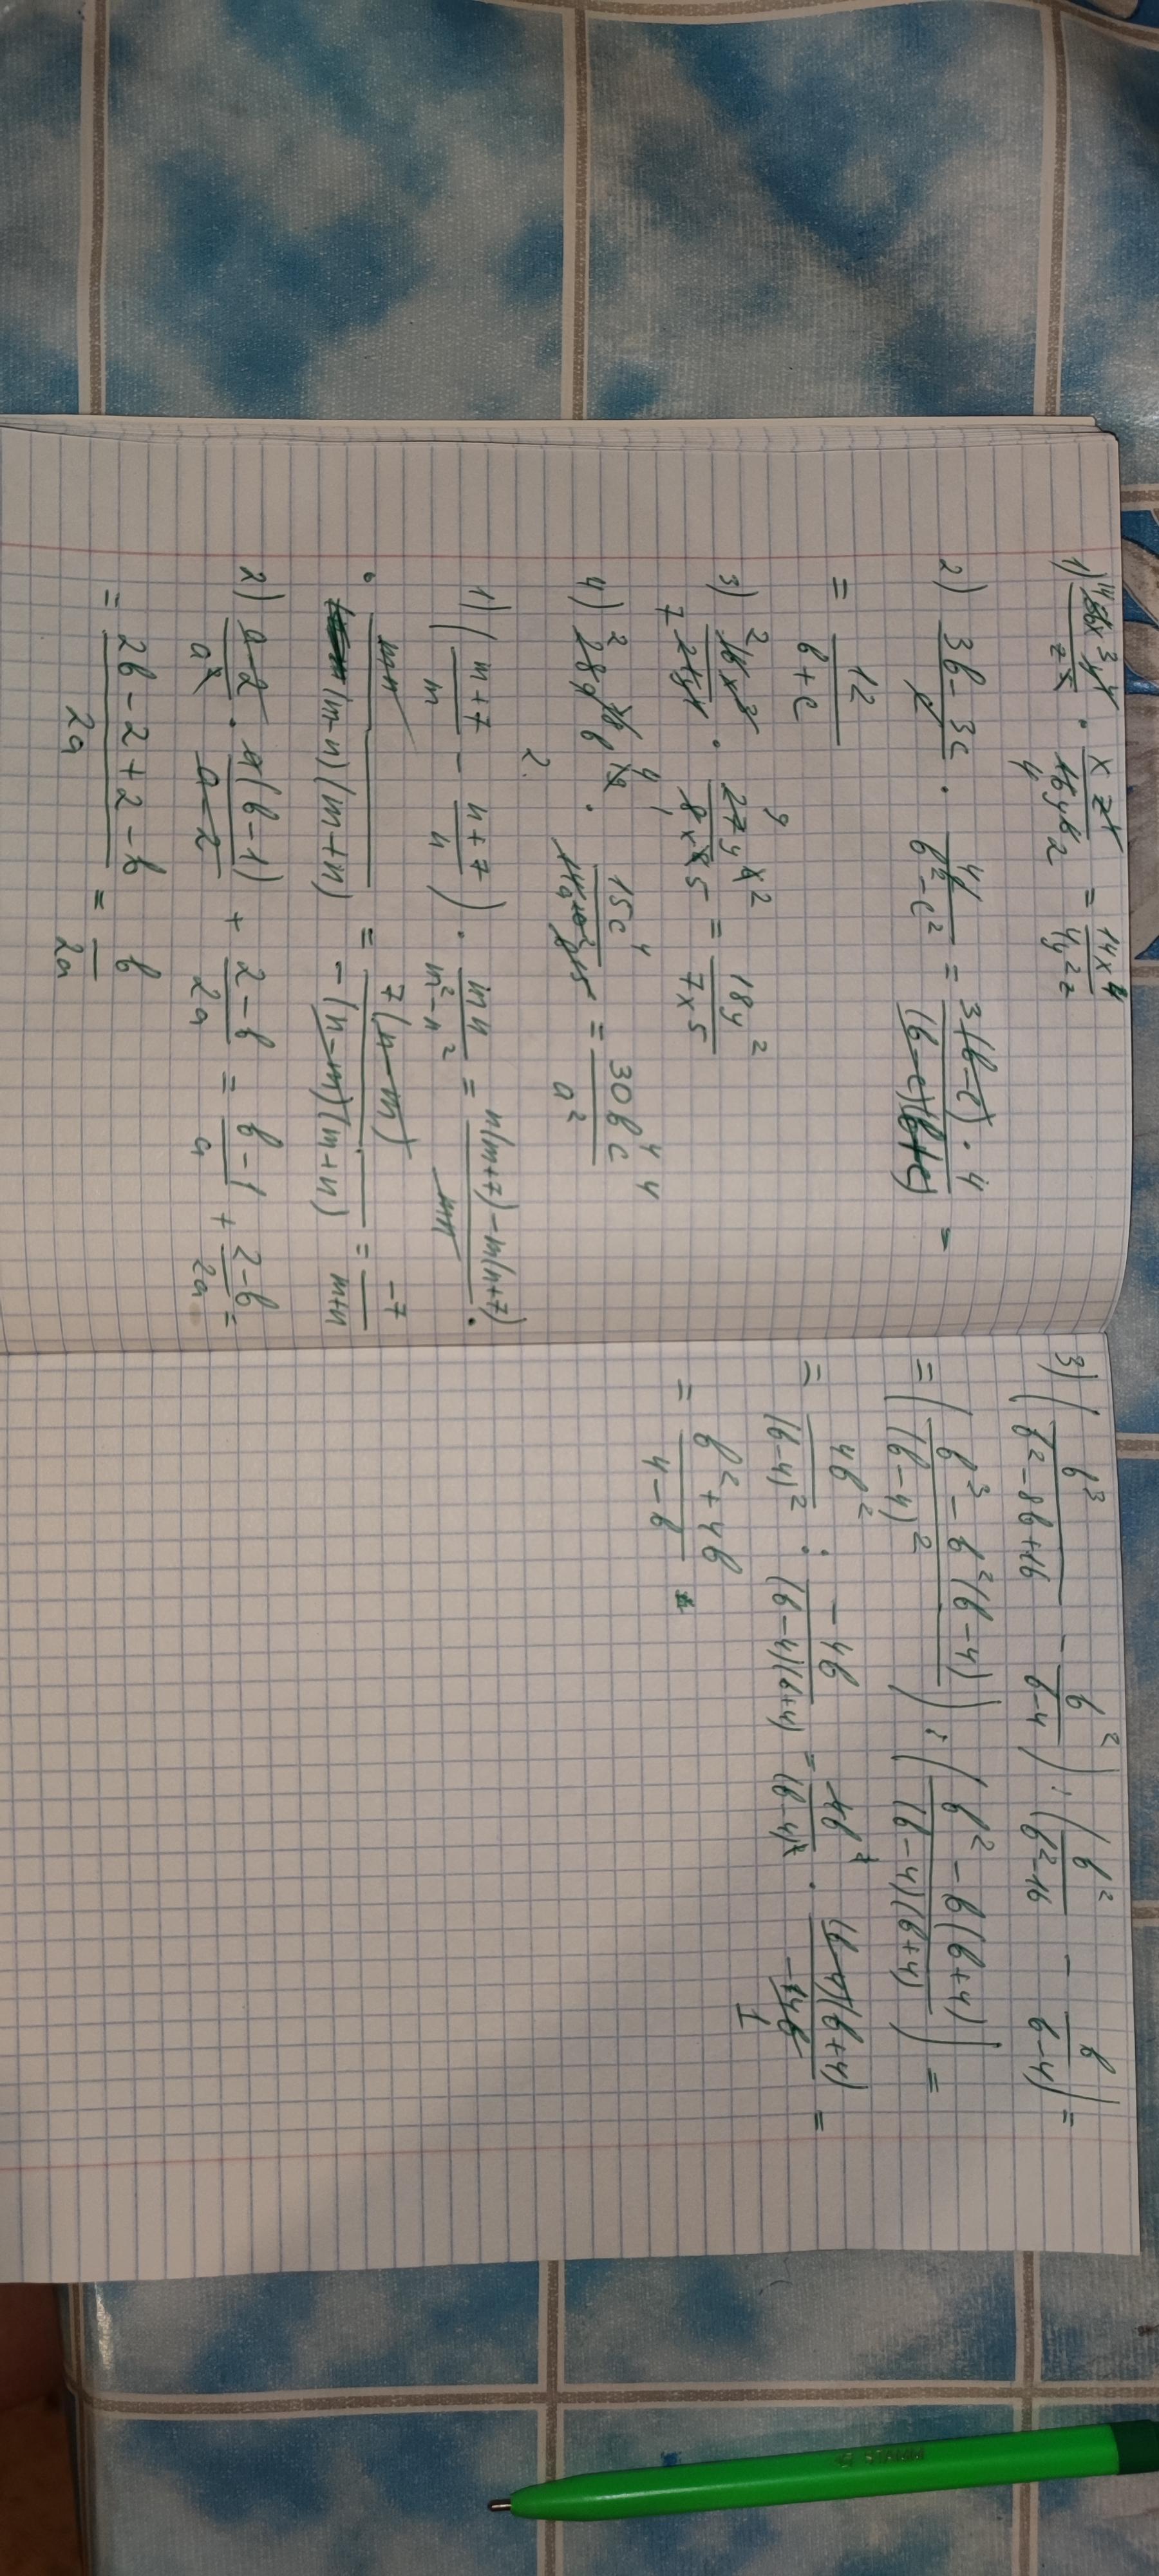 1) 14 56x³y⁴ / z⁵ · x z⁴ / 16 y⁶ z 4 = 14x⁴ / 4y²z
2) 3b-3c / c · 4c / b²-c² = 3(b-c)·4 / (b-c)(b+c) =
= 12 / b+c
3) 2 16x³ / 7 21y⁴ · 9 27y x² / 8x⁵ = 18y² / 7x⁵
4) 2 28 b⁴ · 15c⁴ / 14a² = 30b⁴c⁴ / a²
2.
1) (m+7 / m - n+7 / n) · mn / m²-n² = n(m+7)-m(n+7) / mn ·
· mn / (m-n)(m+n) = 7(n-m) / -(n-m)(m+n) = -7 / m+n
2) a-2 / a² · a(b-1) / a-2 + 2-b / 2a = b-1 / a + 2-b / 2a =
= 2b-2+2-b / 2a = b / 2a
3) (b³ / b²-8b+16 - b² / b-4) : (b² / b²-16 - b / b-4) =
= (b³-b²(b-4) / (b-4)²) : (b²-b(b+4) / (b-4)(b+4)) =
= 4b² / (b-4)² : -4b / (b-4)(b+4) = 4b² / (b-4)² · (b-4)(b+4) / -4b 1 =
= b²+4b / 4-b